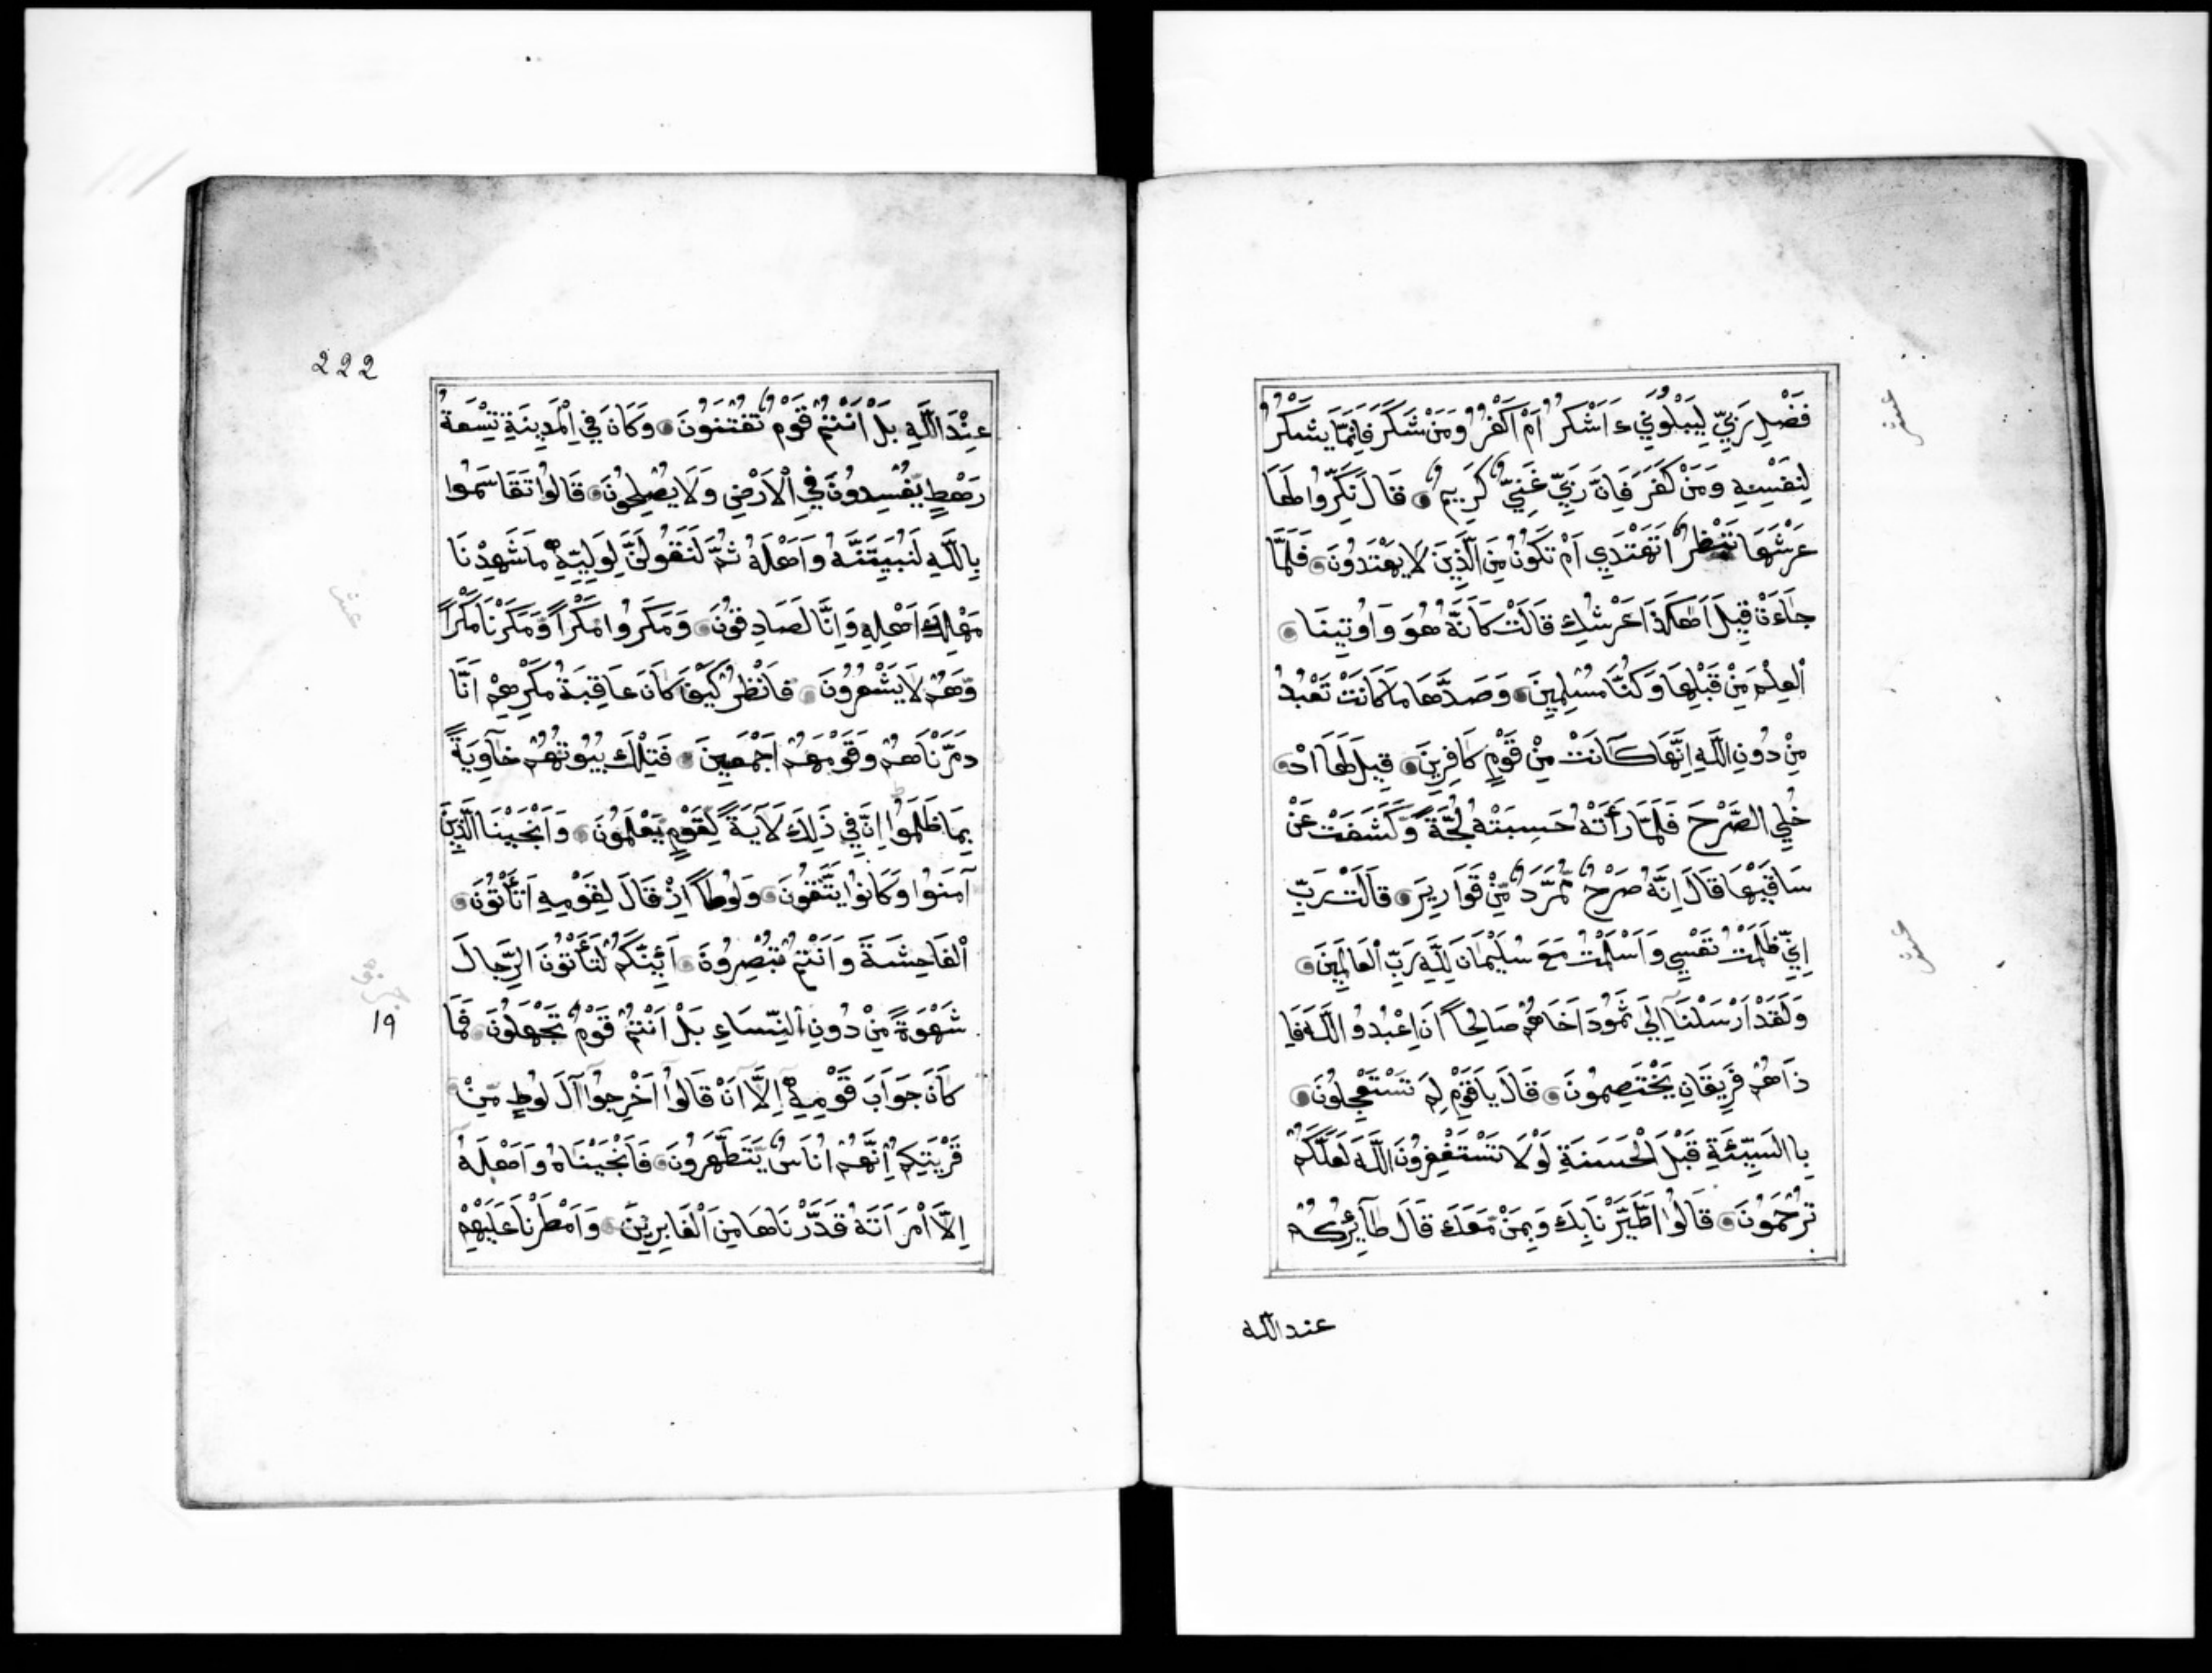 فَضْلِ رَبِّي لِيَبْلُوَنِي ءَاَشْكُرُ اَمْ اَكْفُرُ وَمَنْ شَكَرَ فَاِنَّمَا يَشْكُرُ
لِنَفْسِهِ وَمَنْ كَفَرَ فَاِنَّ رَبِّي غَنِيٌّ كَرِيمٌ قَالَ نَكِّرُوا لَهَا
عَرْشَهَا نَنْظُرْ اَتَهْتَدِي اَمْ تَكُونُ مِنَ الَّذِينَ لَا يَهْتَدُونَ فَلَمَّا
جَاءَتْ قِيلَ اَهَكَذَا عَرْشُكِ قَالَتْ كَاَنَّهُ هُوَ وَاُوتِينَا
الْعِلْمَ مِنْ قَبْلِهَا وَكُنَّا مُسْلِمِينَ وَصَدَّهَا مَا كَانَتْ تَعْبُدُ
مِنْ دُونِ اللَّهِ اِنَّهَا كَانَتْ مِنْ قَوْمٍ كَافِرِينَ قِيلَ لَهَا ادْ
خُلِي الصَّرْحَ فَلَمَّا رَأَتْهُ حَسِبَتْهُ لُجَّةً وَكَشَفَتْ عَنْ
سَاقَيْهَا قَالَ اِنَّهُ صَرْحٌ مُمَرَّدٌ مِنْ قَوَارِيرَ قَالَتْ رَبِّ
اِنِّي ظَلَمْتُ نَفْسِي وَاَسْلَمْتُ مَعَ سُلَيْمَانَ لِلَّهِ رَبِّ الْعَالَمِينَ
وَلَقَدْ اَرْسَلْنَا اِلَى ثَمُودَ اَخَاهُمْ صَالِحاً اَنِ اعْبُدُوا اللَّهَ فَاِ
ذَا هُمْ فَرِيقَانِ يَخْتَصِمُونَ قَالَ يَا قَوْمِ لِمَ تَسْتَعْجِلُونَ
بِاالسَّيِّئَةِ قَبْلَ الْحَسَنَةِ لَوْلَا تَسْتَغْفِرُونَ اللَّهَ لَعَلَّكُمْ
تُرْحَمُونَ قَالُوا اطَّيَّرْنَا بِكَ وَبِمَنْ مَعَكَ قَالَ طَآئِرُكُمْ
عند الله
222
عِنْدَ اللَّهِ بَلْ اَنْتُمْ قَوْمٌ تُفْتَنُونَ وَكَانَ فِي الْمَدِينَةِ تِسْعَةُ
رَهْطٍ يُفْسِدُونَ فِي الْاَرْضِ وَلَا يُصْلِحُونَ قَالُوا تَقَاسَمُوا
بِاللَّهِ لَنُبَيِّتَنَّهُ وَاَهْلَهُ ثُمَّ لَنَقُولَنَّ لِوَلِيِّهِ مَا شَهِدْنَا
مَهْلِكَ اَهْلِهِ وَاِنَّا لَصَادِقُونَ وَمَكَرُوا مَكْراً وَمَكَرْنَا مَكْراً
وَهُمْ لَا يَشْعُرُونَ فَانْظُرْ كَيْفَ كَانَ عَاقِبَةُ مَكْرِهِمْ اَنَّا
دَمَّرْنَاهُمْ وَقَوْمَهُمْ اَجْمَعِينَ فَتِلْكَ بُيُوتُهُمْ خَاوِيَةً
بِمَا ظَلَمُوا اِنَّ فِي ذَلِكَ لَآيَةً لِقَوْمٍ يَعْلَمُونَ وَاَنْجَيْنَا الَّذِينَ
آمَنُوا وَكَانُوا يَتَّقُونَ وَلُوطاً اِذْ قَالَ لِقَوْمِهِ اَتَأْتُونَ
الْفَاحِشَةَ وَاَنْتُمْ تُبْصِرُونَ اَئِنَّكُمْ لَتَأْتُونَ الرِّجَالَ
شَهْوَةً مِنْ دُونِ النِّسَاءِ بَلْ اَنْتُمْ قَوْمٌ تَجْهَلُونَ فَمَا
كَانَ جَوَابَ قَوْمِهِ اِلَّا اَنْ قَالُوا اَخْرِجُوا آلَ لُوطٍ مِنْ
قَرْيَتِكُمْ اِنَّهُمْ اُنَاسٌ يَتَطَهَّرُونَ فَاَنْجَيْنَاهُ وَاَهْلَهُ
اِلَّا امْرَاَتَهُ قَدَّرْنَاهَا مِنَ الْغَابِرِينَ وَاَمْطَرْنَا عَلَيْهِمْ
١٩